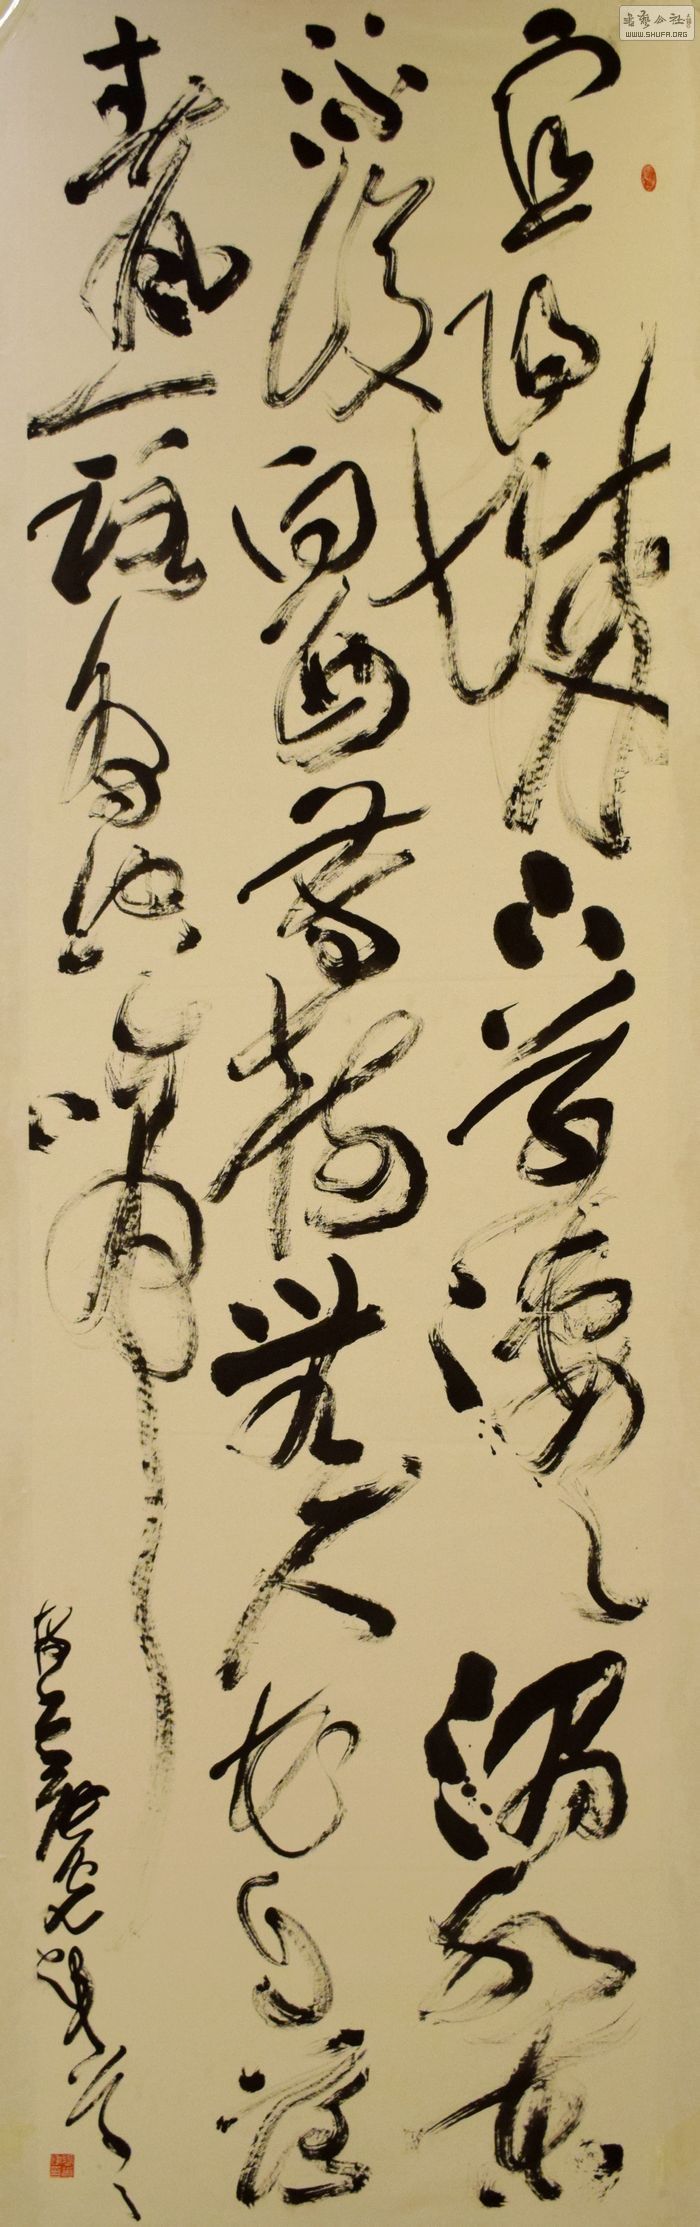 書藝公社
WWW.SHUFA.ORG
宜陽城下草淒々澗水東
流復向西芳樹無人花自落
春山一路鳥空啼